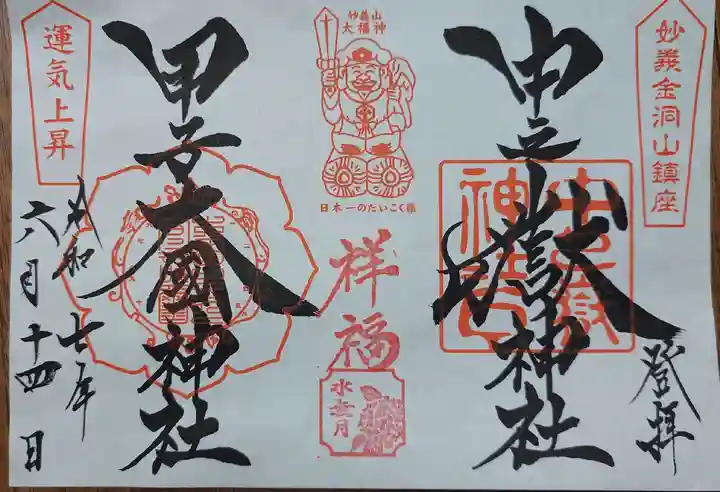 妙義金洞山鎮座
登拝
中之嶽神社
中之嶽
神社
妙義山
大福神
日本一のだいこく様
祥福
水無月
甲子大國神社
運気上昇
令和七年
六月十四日